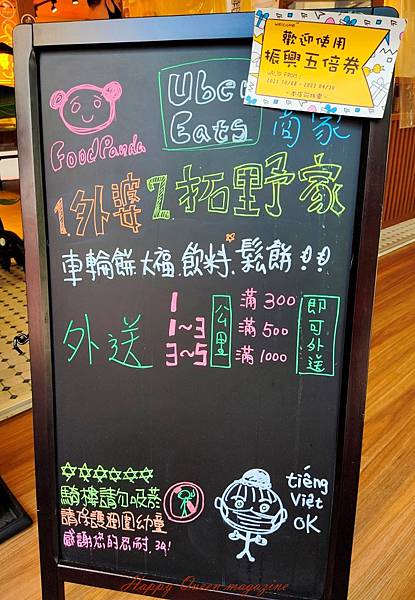 WELCOME
歡迎使用
振興五倍券
VALID FROM:
2021 10/08 - 2022 04/30
Uber
Eats 商家
FoodPanda
1.外婆 2.拓野家
車輪餅.大福.飲料.鬆餅!!
外送
1 滿300
1~3 滿500
3~5 滿1000
公里
即可外送
騎樓請勿吸菸
請保護週圍幼童
感謝您的忍耐,39!
tiếng
Việt
OK
Happy Queen magazine